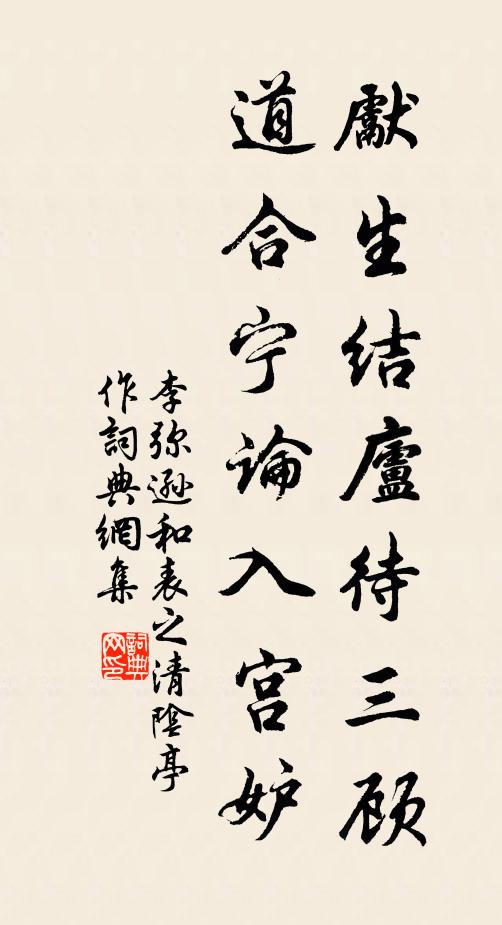 獻生結廬待三顾
道合宁論入宫妒
李弥遜和表之清陰亭
作詞典網集
詞典网印